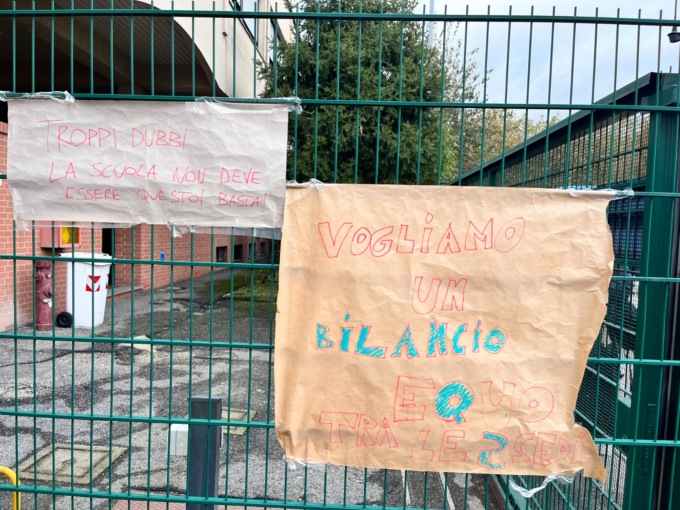 TROPPI DUBBI
LA SCUOLA NON DEVE
ESSERE QUESTO! BASTA!
VOGLIAMO
UN
BILANCIO
EQUO
TRA LE 2 SEDI